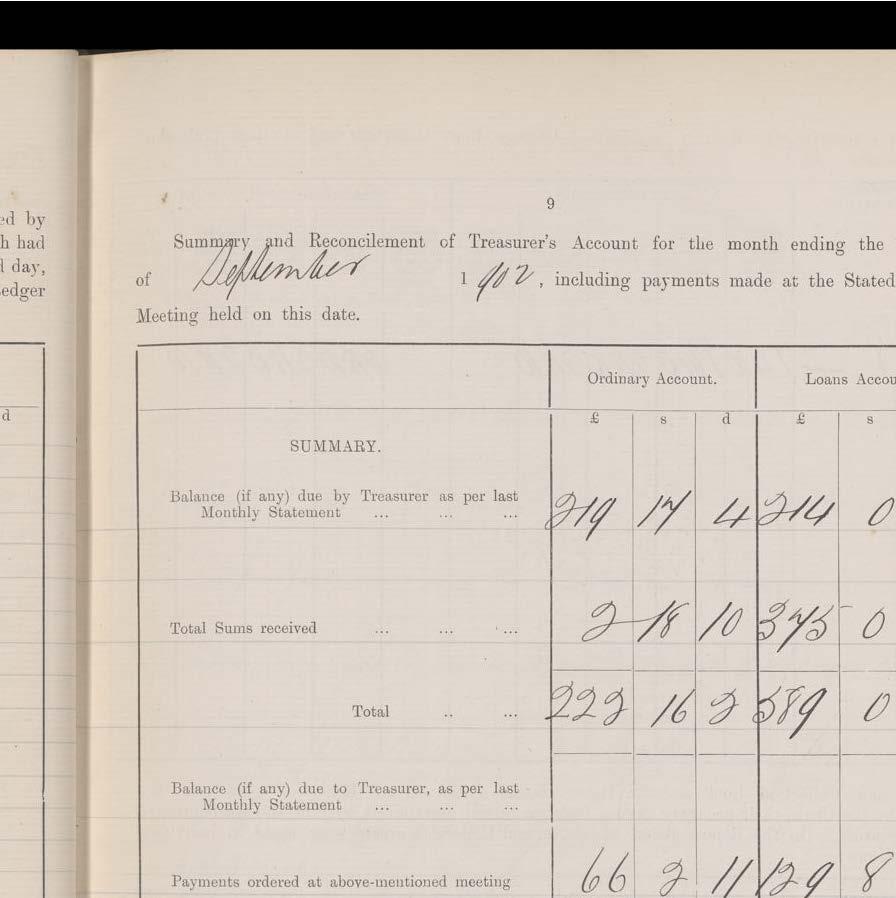 ed by
h had
d day,
edger
d
9
Summary and Reconcilement of Treasurer's Account for the month ending the
of September 1902, including payments made at the Stated
Meeting held on this date.
Ordinary Account. Loans Accou
£ s d £ s
SUMMARY.
Balance (if any) due by Treasurer as per last
Monthly Statement ... ... ... 219 17 4 214 0
Total Sums received ... ... ... 2 18 10 375 0
Total .. ... 222 16 2 589 0
Balance (if any) due to Treasurer, as per last
Monthly Statement ... ... ...
Payments ordered at above-mentioned meeting 66 2 11 129 8